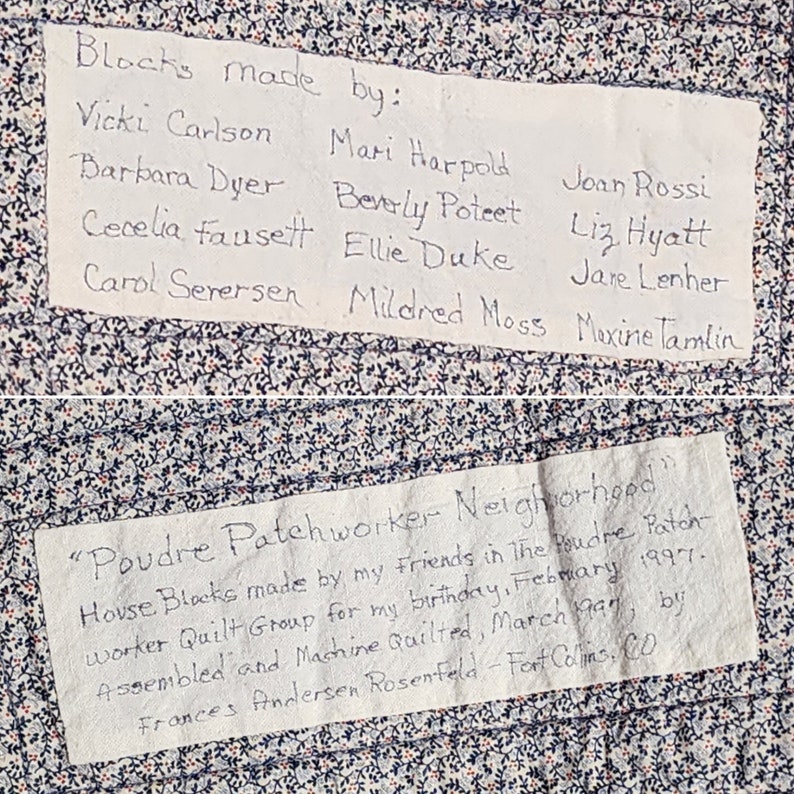 Blocks made by:
Vicki Carlson Mari Harpold Joan Rossi
Barbara Dyer Beverly Poteet Liz Hyatt
Cecelia Fausett Ellie Duke Jane Lenher
Carol Serersen Mildred Moss Maxine Tamlin
"Poudre Patchworker Neighborhood"
House Blocks made by my friends in The Poudre Patch-
worker Quilt Group for my birthday, February 1997.
Assembled and Machine Quilted, March 1997, by
Frances Andersen Rosenfeld - Fort Collins, CO